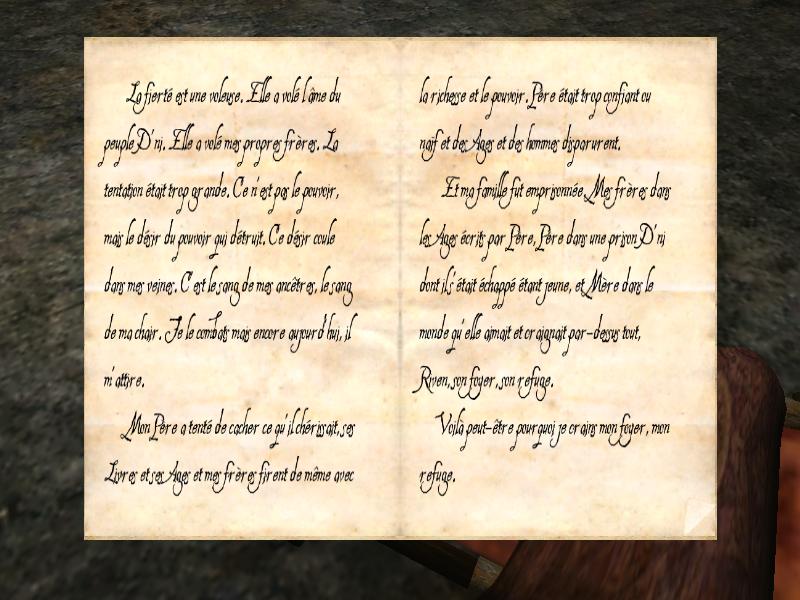 La fierté est une voleuse. Elle a volé l'âme du
peuple D'ni. Elle a volé mes propres frères. La
tentation était trop grande. Ce n'est pas le pouvoir,
mais le désir du pouvoir qui détruit. Ce désir coule
dans mes veines. C'est le sang de mes ancêtres, le sang
de ma chair. Je le combats mais encore aujourd'hui, il
m'attire.
Mon Père a tenté de cacher ce qu'il chérissait, ses
Livres et ses Ages et mes frères firent de même avec
la richesse et le pouvoir. Père était trop confiant ou
naïf et des Ages et des hommes disparurent.
Et ma famille fut emprisonnée. Mes frères dans
les Ages écrits par Père, Père dans une prison D'ni
dont il s'était échappé étant jeune, et Mère dans le
monde qu'elle aimait et craignait par-dessus tout,
Riven, son foyer, son refuge.
Voilà peut-être pourquoi je crains mon foyer, mon
refuge.